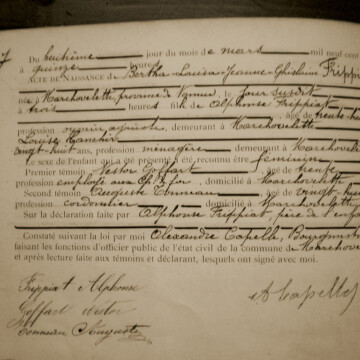 Du huitième jour du mois de mars mil neuf cent
à quinze heures
ACTE DE NAISSANCE de Bertha-Louisa-Jeanne-Ghislaine Frippiat
née à Marchovelette, province de Namur, le jour susdit
à trois heures fille de Alphonse Frippiat
, âgé de trente-huit
profession ouvrier agricole, demeurant à Marchovelette
Louise
vingt-huit ans, ménagère demeurant à Marchovelette
Le sexe de l'enfant qui a été présenté a été reconnu être féminin
Premier témoin Nestor Goffart âgé de trente
profession employé aux domicilié à Marchovelette
Second témoin Auguste âgé de vingt-huit
profession cordonnier domicilié à Marchovelette
Sur la déclaration faite par Alphonse Frippiat, père de l'enfant
Constaté suivant la loi par moi Alexandre Capelle, Bourgmestre
faisant les fonctions d'officier public de l'état civil de la commune de Marchovelette
et après lecture faite aux témoins et déclarant, lesquels ont signé avec moi.
Frippiat Alphonse
Goffart Nestor
Auguste
A Capelle